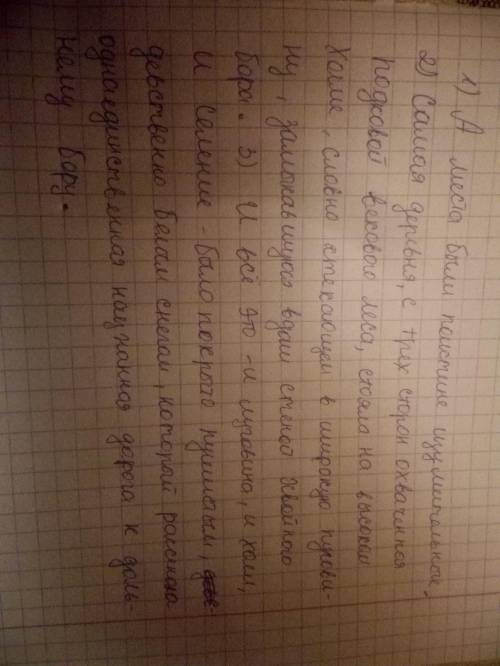 1) А места были поистине изумительные.
2) Самая деревня, с трех сторон охваченная
подковой векового леса, стояла на высоком
холме, словно стекающем в широкую лугови-
ну, замыкавшуюся вдали стеной хвойного
бора. 3) И всё это - и луговина, и холм,
и селение - было покрыто пушистым,
девственно белым снегом, который рассекала
одна-единственная наезжанная дорога к даль-
нему бору.